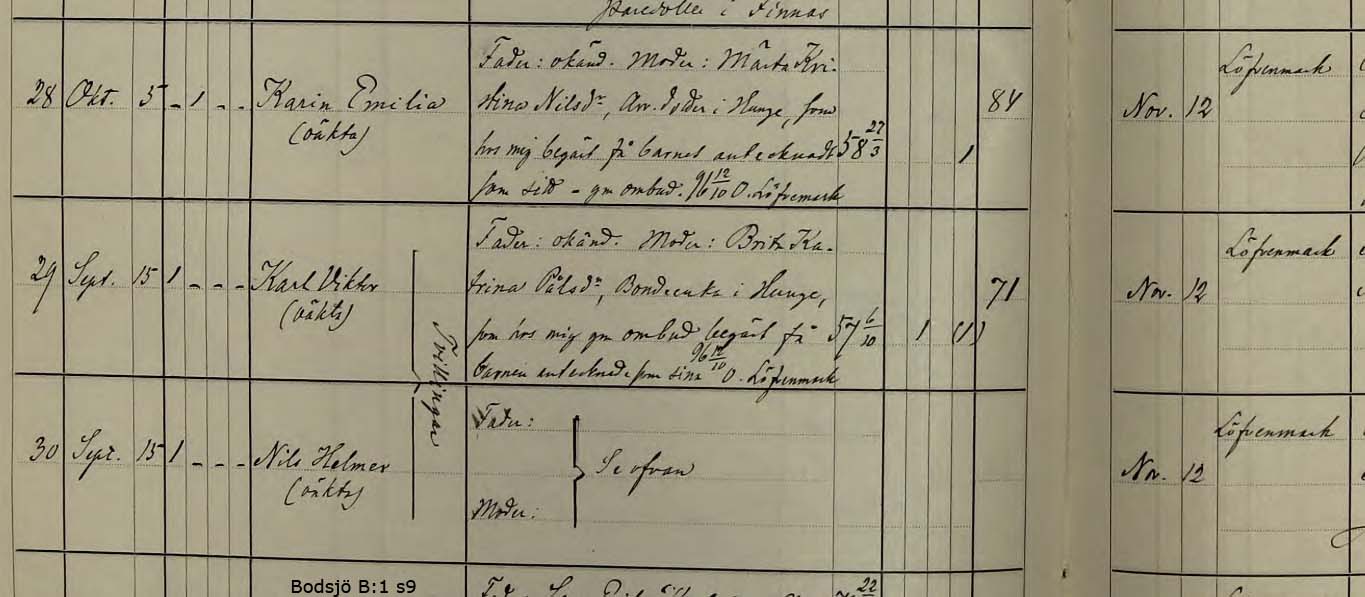 i Finnäs
28 Okt. 5 - 1 - - Karin Emilia
(oäkta)
Fader: okänd. Moder: Märta Kri-
stina Nilsdr, Arr. i Hunge, som
hos mig begärt få barnet antecknadt 58 27/3 1
som sitt - gm ombud. 96 12/10 O. Löfvenmark
84
Nov. 12 Löfvenmark
29 Sept. 15 1 - - - Karl Viktor
(oäkta)
Fader: okänd. Moder: Brita Ka-
trina Pålsdr, Bondeenka i Hunge,
som hos mig gm ombud begärt få 57 6/10 1 (1)
barnen antecknade som sina 96 12/10 O. Löfvenmark
71
Nov. 12 Löfvenmark
Tvillingar
30 Sept. 15 1 - - - Nils Helmer
(oäkta)
Fader:
Se ofvan
Moder:
Nov. 12 Löfvenmark
Bodsjö B:1 s9
22